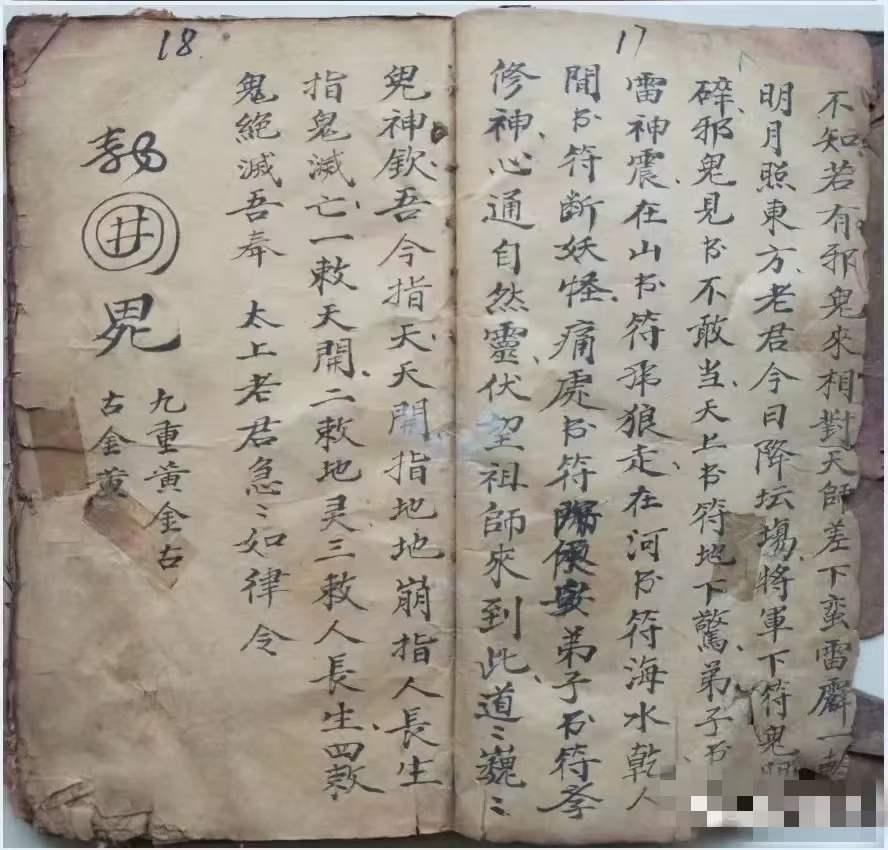 17
不知若有邪鬼來相對天師差下蛮雷霹一
明月照東方老君今日降坛場將軍下符鬼
碎邪鬼見书不敢当天上书符地下驚弟子书
雷神震在山书符狼走在河书符海水乾人
間书符断妖怪痛處书符便安弟子书符孝
修神心通自然靈伏望祖師來到此道〻巍〻
18
鬼神欽吾今指天天開指地地崩指人長生
指鬼滅亡一敕天開二敕地灵三敕人長生四敕
鬼絕滅吾奉 太上老君急〻如律令
井
九重黃金古
古金黃